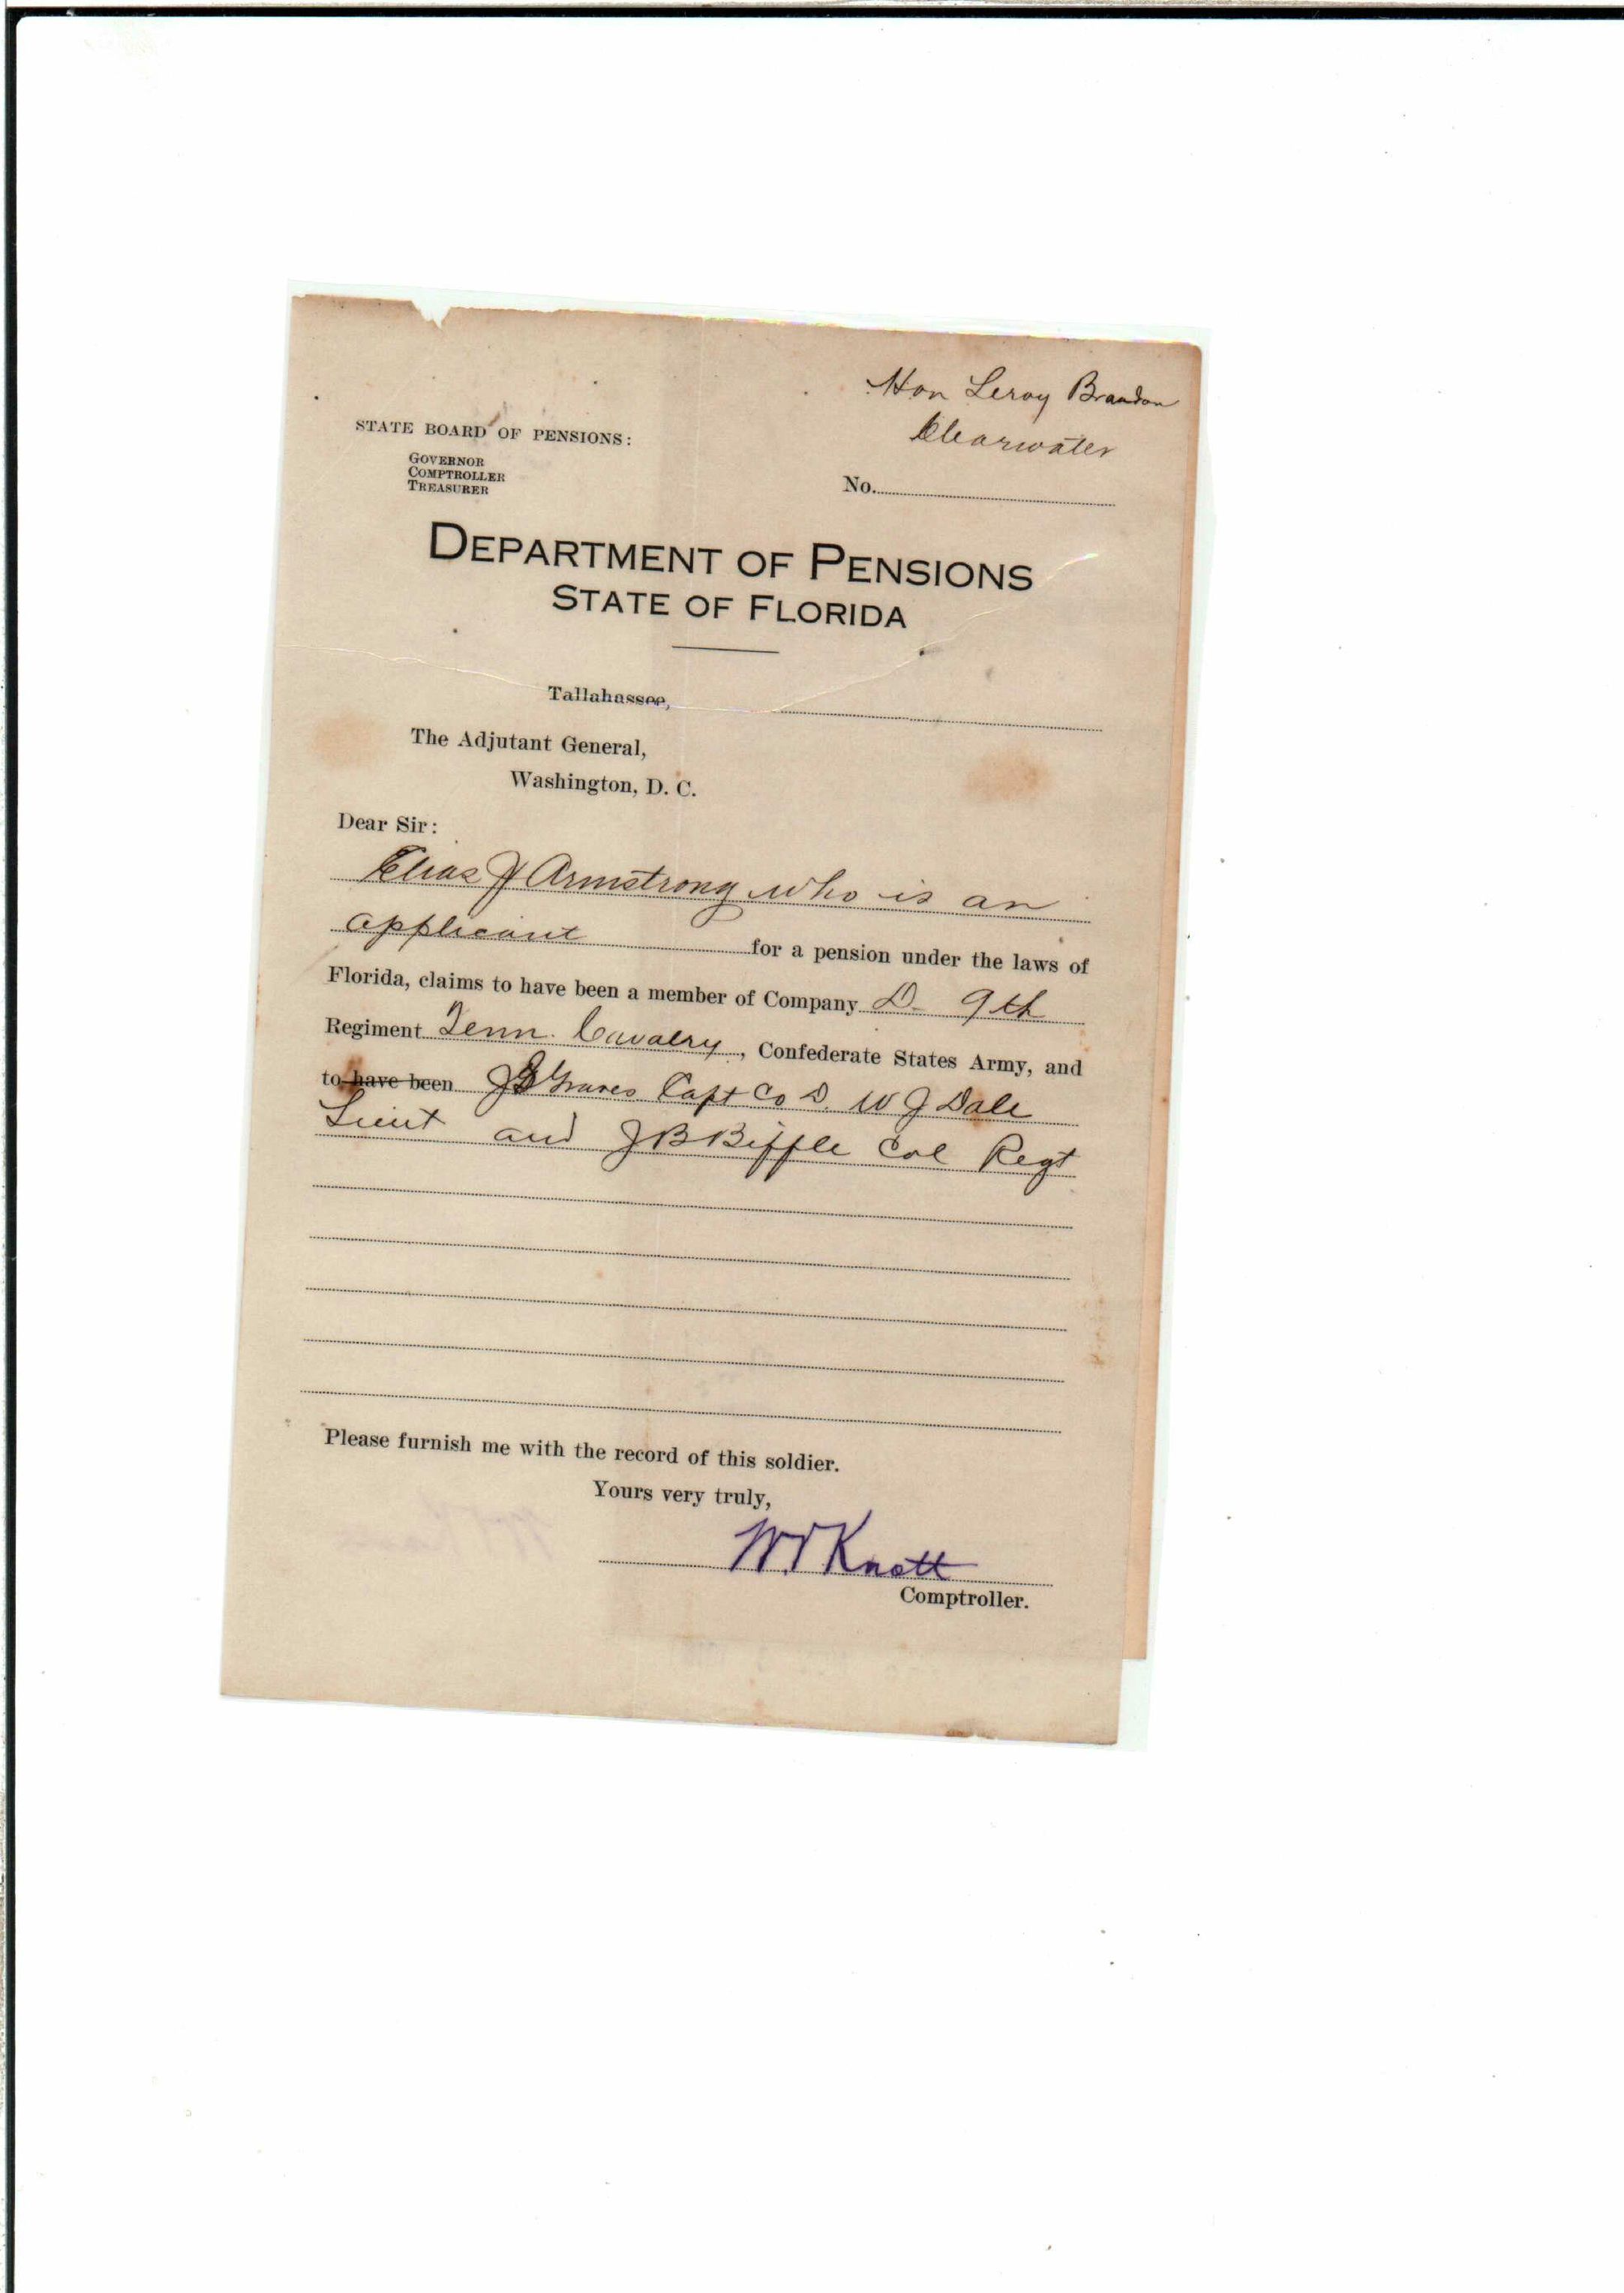 Hon Leroy Brandon
Clearwater
STATE BOARD OF PENSIONS:
GOVERNOR
COMPTROLLER
TREASURER
No.
DEPARTMENT OF PENSIONS
STATE OF FLORIDA
Tallahassee,
The Adjutant General,
Washington, D. C.
Dear Sir:
Elias J Armstrong who is an
applicant for a pension under the laws of
Florida, claims to have been a member of Company D 9th
Regiment Tenn. Cavalry, Confederate States Army, and
to have been Graves Capt Co D. W J Dale
Lieut and J B Biffle Col Regt
Please furnish me with the record of this soldier.
Yours very truly,
W V Knott
Comptroller.